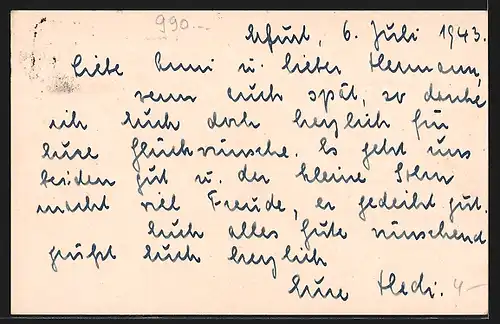 990.-
Erfurt, 6. Juli 1943.
Liebe Anni u. lieber Hermann,
wenn auch spät, so danke
ich Euch doch herzlich für
Eure Glückwünsche. Es geht uns
beiden gut u. der kleine Sohn
macht viel Freude, er gedeiht gut.
Euch alles Gute wünschend
grüßt Euch herzlich
Eure Hedi.
4-